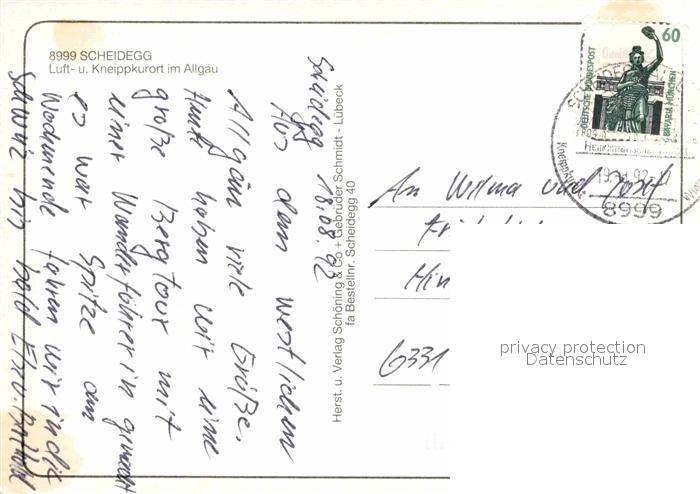 8999 SCHEIDEGG
Luft- u. Kneippkurort im Allgäu
Scheidegg 18.08.92
Aus dem westlichen
Allgäu viele Grüße.
Heute haben wir eine
große Bergtour mit
einer Wanderführerin gemacht
es war Spitze am
Wochenende fahren wir in die
Schweiz bis bald
Herst. u. Verlag Schöning & Co + Gebrüder Schmidt - Lübeck
fa Bestellnr. Scheidegg 40
60
DEUTSCHE BUNDESPOST
BAVARIA MÜNCHEN
Kneippkurort
8999
An Wilma und Josef
6331
privacy protection
Datenschutz